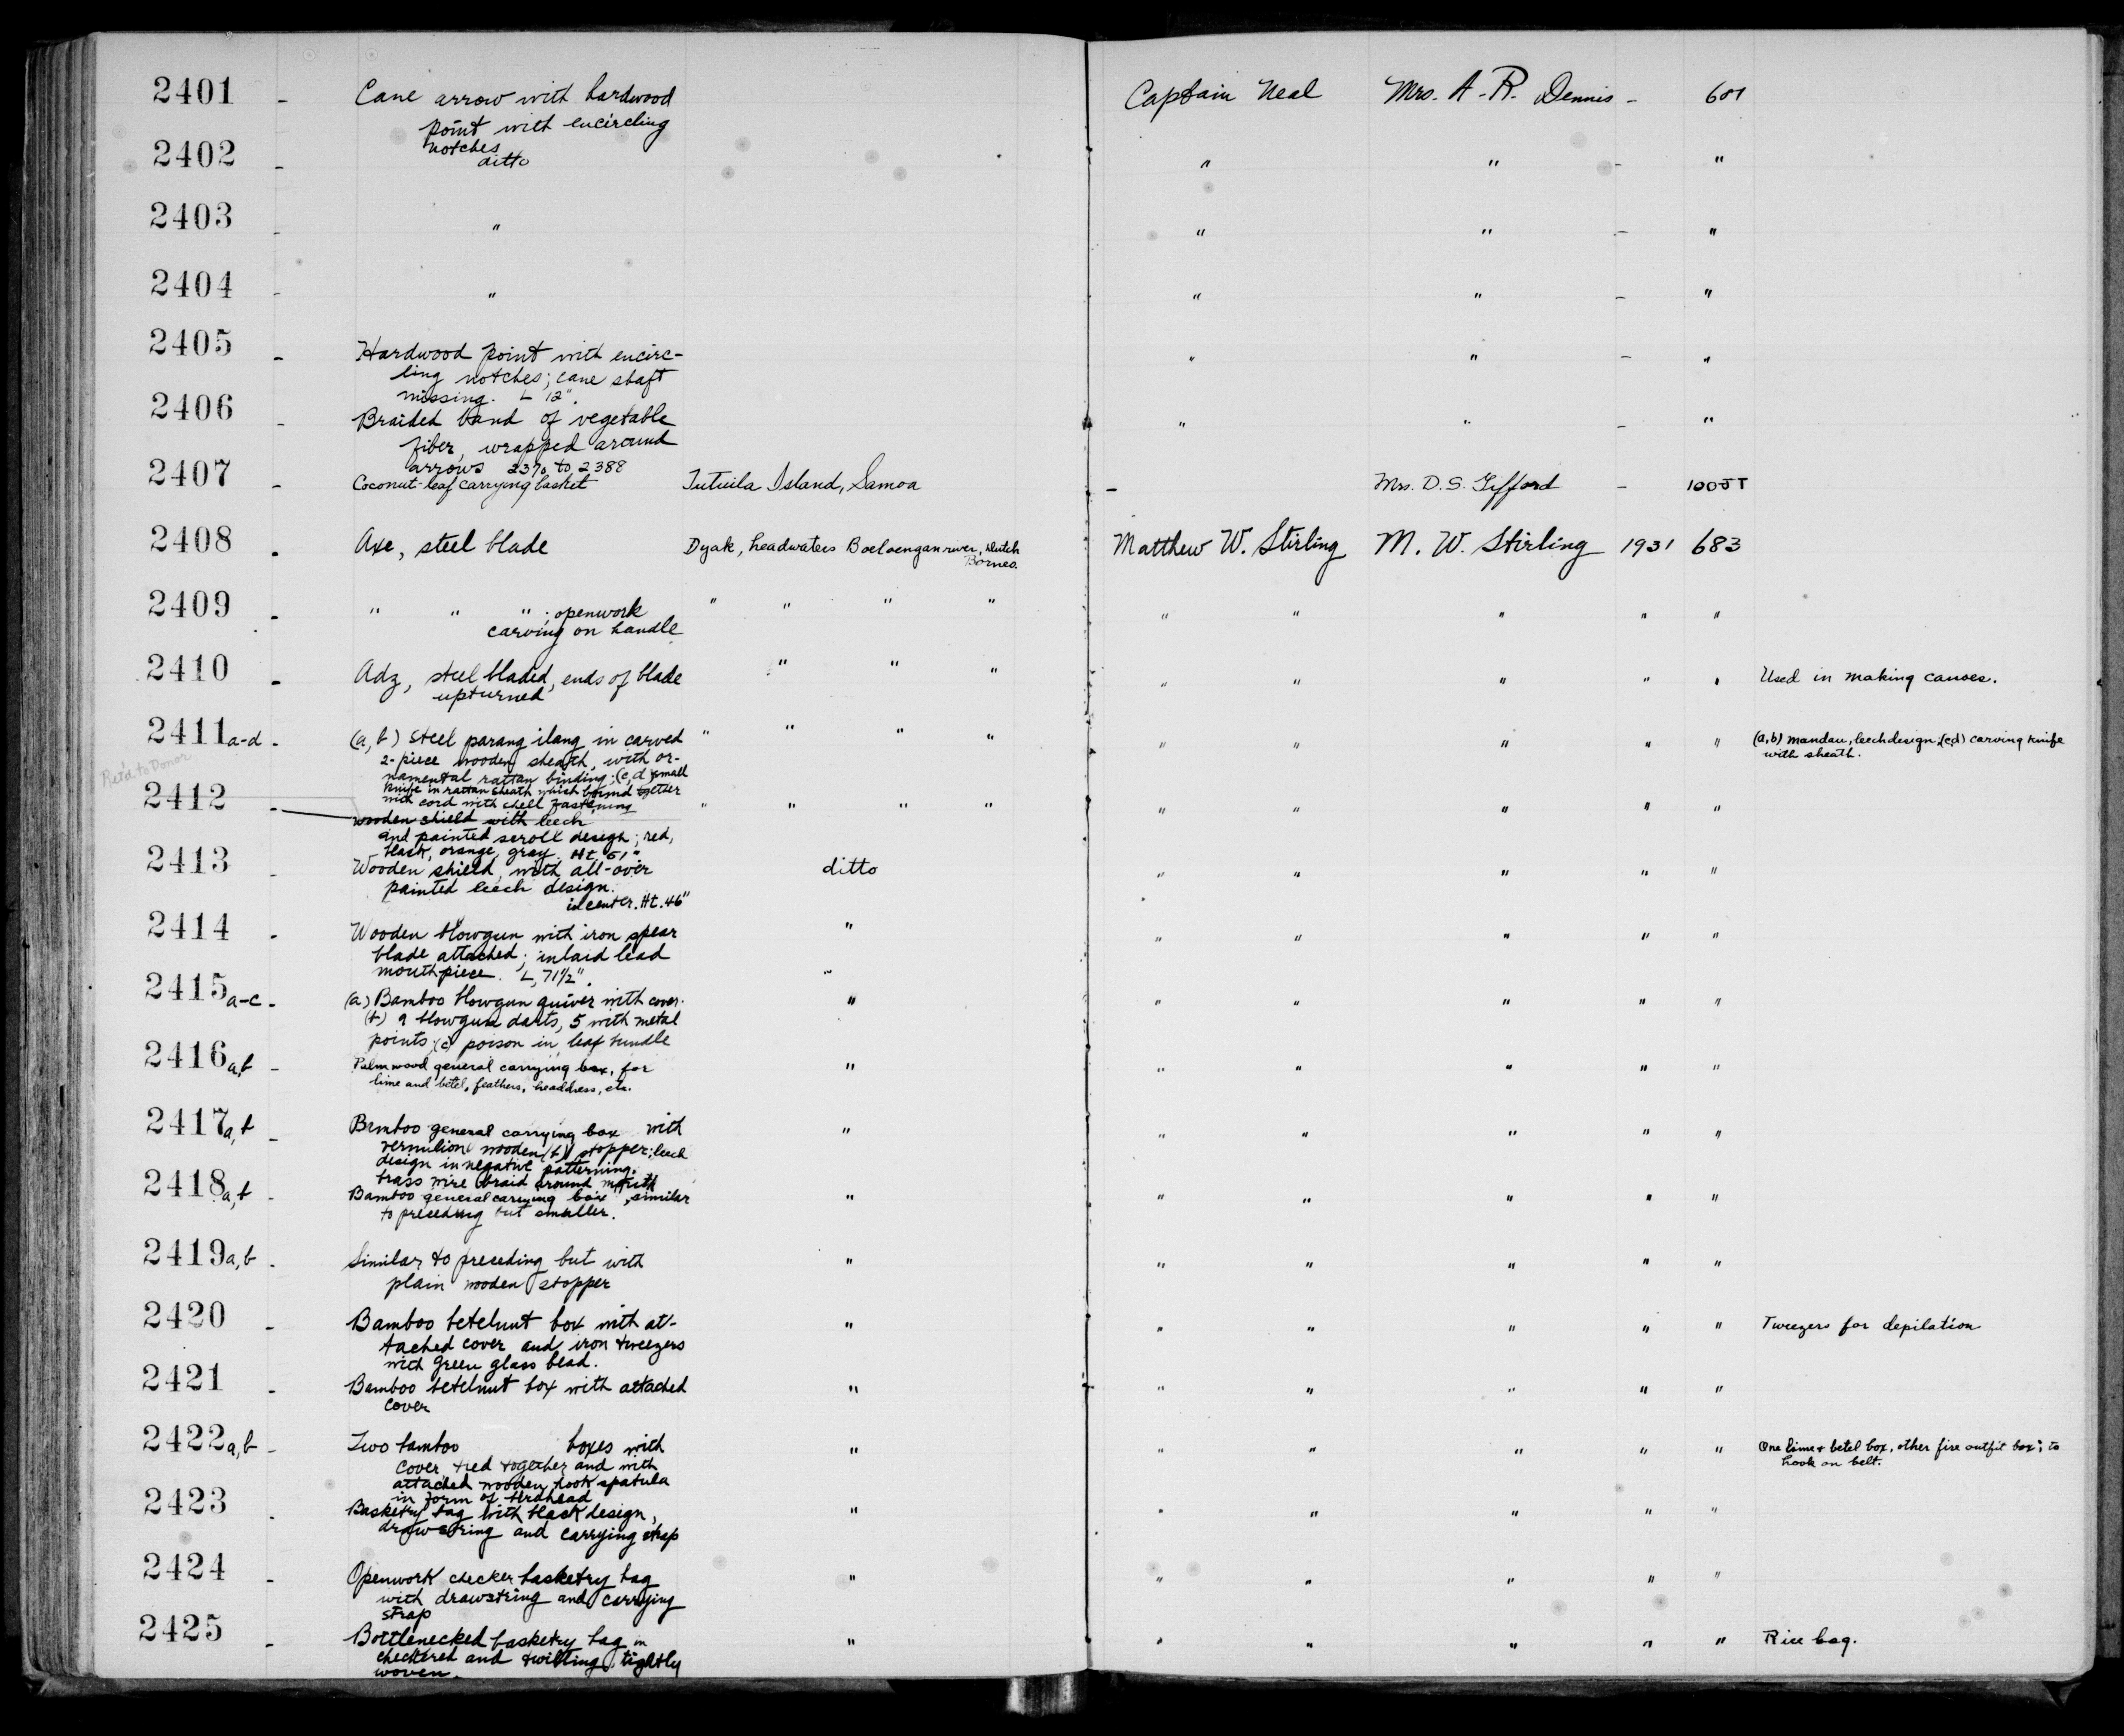 2401 - Cane arrow with hardwood Captain Neal Mrs. A. R. Dennis -
point with encircling
notches
2402 - ditto " " - "
2403 - " " " - "
2404 - " " " - "
2405 - Hardwood point with encirc- " " - "
ling notches; cane shaft
missing. L 12".
2406 - Braided band of vegetable " " - "
fiber, wrapped around
arrows 2370 to 2388
2407 - Coconut-leaf carrying basket Tutuila Island, Samoa - Mrs. D. S. Gifford -
2408 - Axe, steel blade Dyak, headwaters Boeloengan river, Dutch Matthew W. Stirling M. W. Stirling 1931 683
Borneo.
2409 - " " "; openwork " " " " " " " " "
carving on handle
2410 - Adz, steel bladed, ends of blade " " " " " " " " Used in making canoes.
upturned
2411a-d - (a,b) Steel parang ilang in carved " " " " " " " " " (a,b) mandau, leech design; (c,d) carving knife
2-piece wooden sheath, with or- with sheath.
namental rattan binding; (c,d) small
knife in rattan sheath which bound together
with cord with shell fastening
Ret'd to Donor
2412 - wooden shield with leech " " " " " " " " "
and painted scroll design; red,
black, orange, gray. Ht. 51"
2413 - Wooden shield, with all-over ditto " " " " "
painted leech design.
in center. Ht. 46"
2414 - Wooden blowgun with iron spear " " " " " "
blade attached; inlaid lead
mouthpiece. L, 71½".
2415a-c - (a) Bamboo blowgun quiver with cover. " " " " " "
(b) 9 blowgun darts, 5 with metal
points; (c) poison in leaf bundle
2416a,b - Palm wood general carrying box, for " " " " " "
lime and betel, feathers, headdress, etc.
2417a,b - Bamboo general carrying box with " " " " " "
vermilion wooden (b) stopper; leech
design in negative patterning.
brass wire braid around mouth
2418a,b - Bamboo general carrying box, similar " " " " " "
to preceding but smaller.
2419a,b - Similar to preceding but with " " " " " "
plain wooden stopper
2420 - Bamboo betelnut box with at- " " " " " " Tweezers for depilation
tached cover and iron tweezers
with green glass bead.
2421 - Bamboo betelnut box with attached " " " " " "
cover
2422a,b - Two bamboo boxes with " " " " " " One lime & betel box, other fire outfit box; to
cover tied together and with hook on belt.
attached wooden hook spatula
in form of birdhead
2423 - Basketry bag with black design, " " " " " "
drawstring and carrying strap
2424 - Openwork checker basketry bag " " " " " "
with drawstring and carrying
strap
2425 - Bottlenecked basketry bag in " " " " " " Rice bag.
checkered and twilling, tightly
woven.